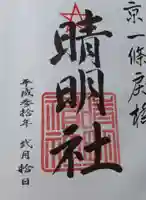 京一條戻橋
晴明社
平成参拾年 弐月拾日